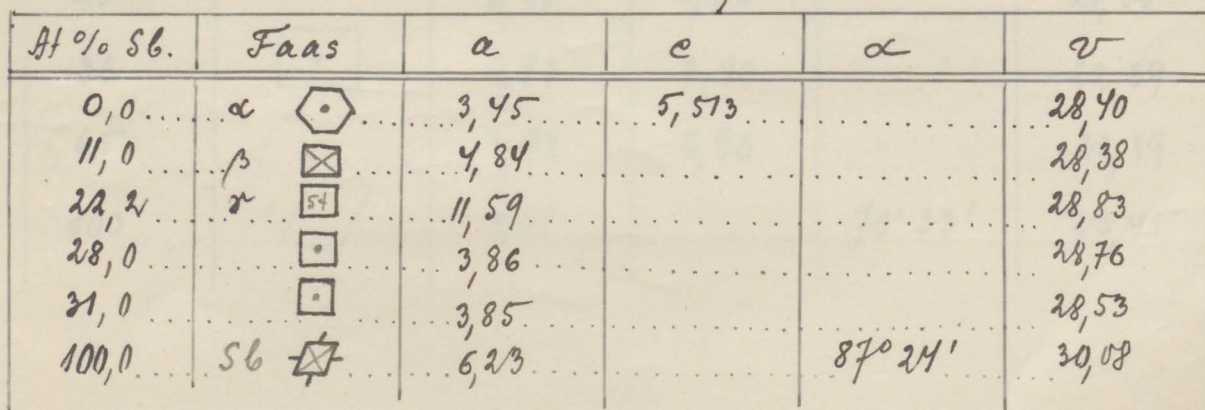 At % Sb. Faas a c α v
0,0 α 3,45 5,513 28,40
11,0 β 4,84 28,38
22,2 γ 54 11,59 28,83
28,0 3,86 28,76
31,0 3,85 28,53
100,0 Sb 6,23 87° 24' 30,08